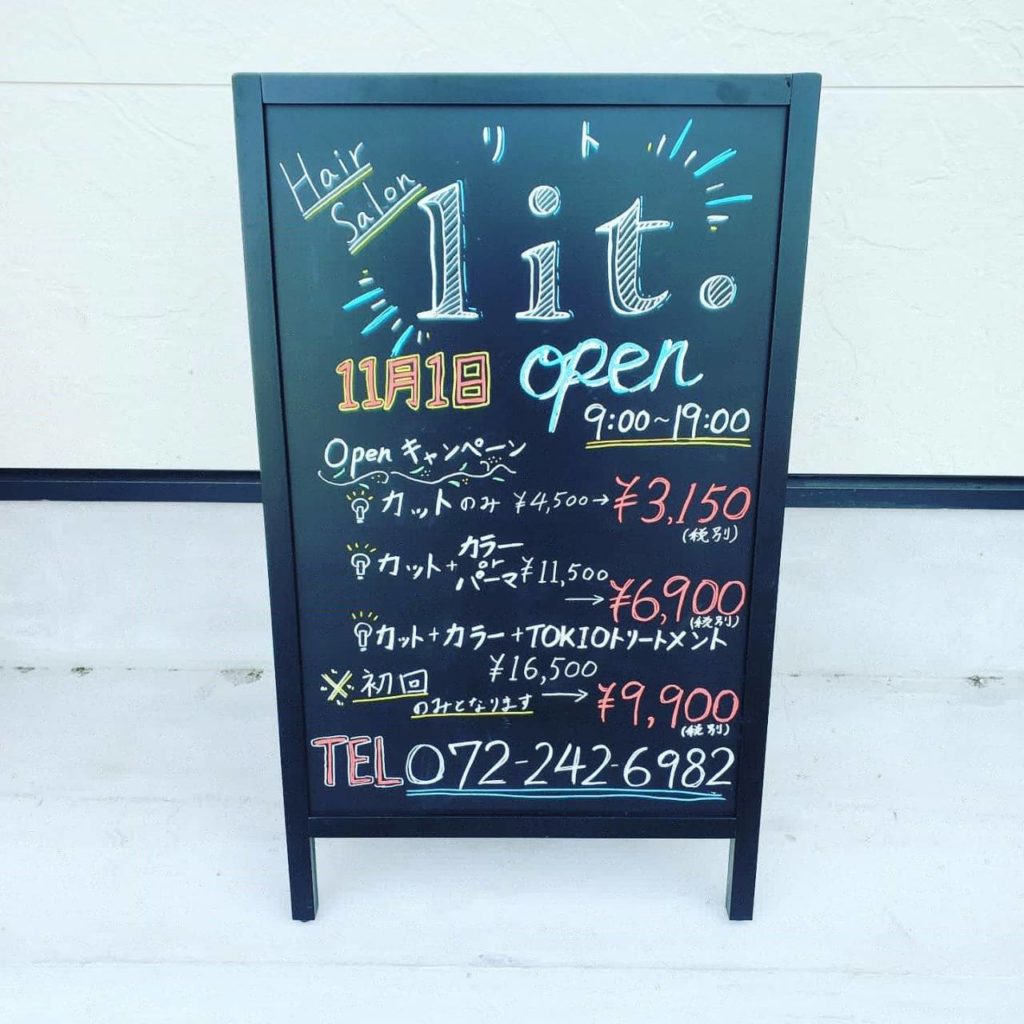 リト
Hair
Salon
lit.
11月1日 open
9:00~19:00
Open キャンペーン
カットのみ ¥4,500→¥3,150
(税別)
カット+カラーorパーマ ¥11,500
→¥6,900
(税別)
カット+カラー+TOKIOトリートメント
¥16,500
※初回
のみとなります
→¥9,900
(税別)
TEL 072-242-6982